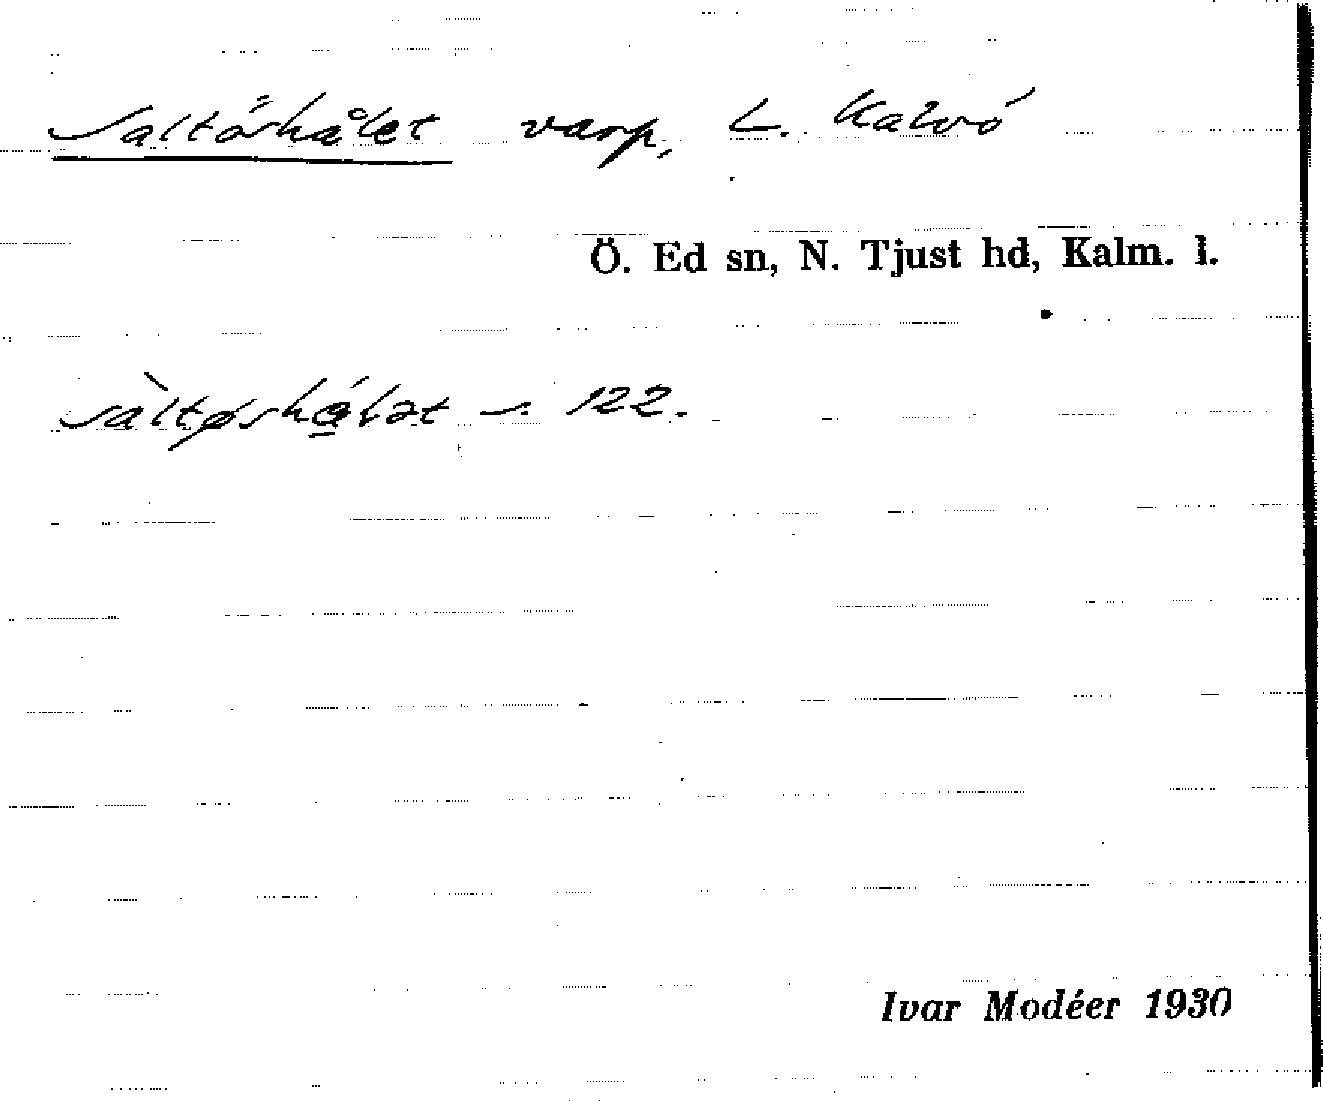 Saltörhålet varp, L. Kalvö
Ö. Ed sn, N. Tjust hd, Kalm. l.
sàltørhá̳lət s. 122.
Ivar Modéer 1930